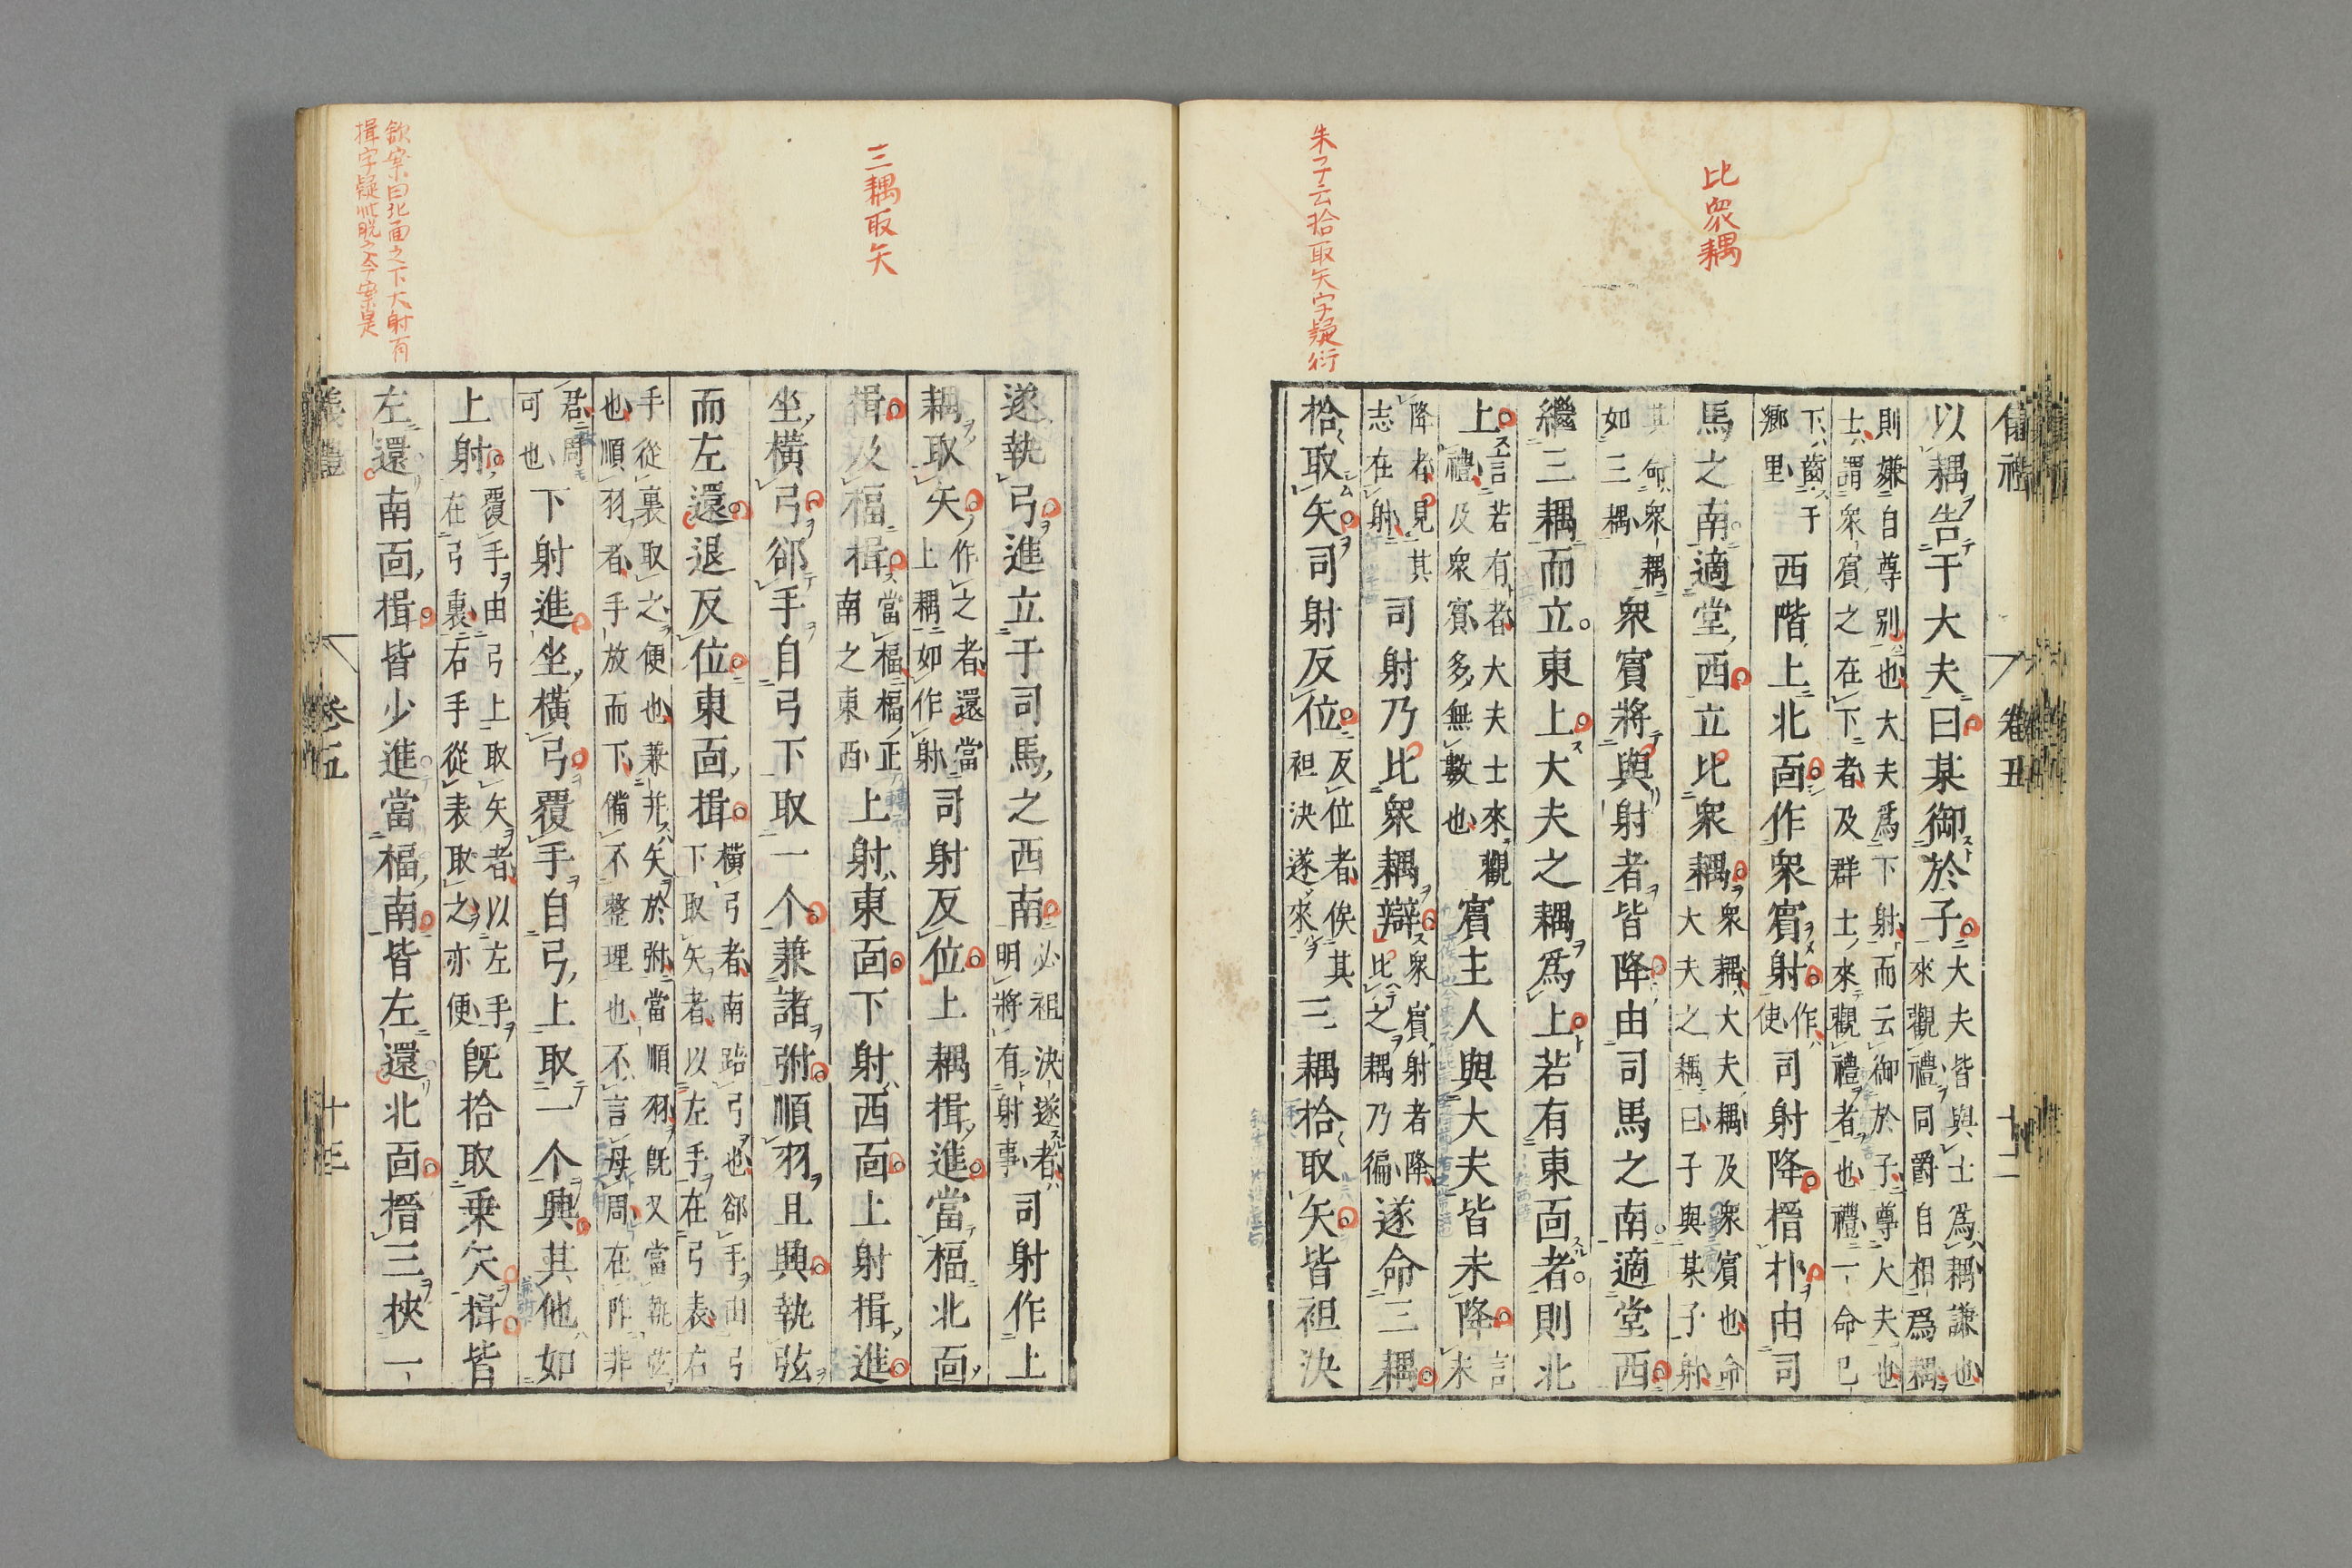 比衆耦
朱子云拾取矢字疑衍
儀禮 卷五 十二
以耦告于大夫曰某御於子大夫皆與士爲耦謙也
來觀禮同爵自相爲耦
則嫌自尊別也大夫爲下射而云御於子尊大夫也
士謂衆賓之在下者及群士來觀禮者也禮一命已
下齒于
鄉里西階上北面作衆賓射作
使司射降搢扑由司
馬之南適堂西立比衆耦衆耦大夫耦及衆賓也命
大夫之耦曰子與某子射
其命衆耦
如三耦衆賓將與射者皆降由司馬之南適堂西
繼三耦而立東上大夫之耦爲上若有東面者則北
上言若有者大夫士來觀
禮及衆賓多無數也賓主人與大夫皆未降言
未
降者見其
志在射司射乃比衆耦辯衆賓射者降
比之耦乃徧遂命三耦
拾取矢司射反位反位者俟其
袒決遂來三耦拾取矢皆袒決
三耦取矢
欽案曰北面之下大射有
揖字疑此脫之今案是
遂執弓進立于司馬之西南必袒決遂者
明將有射事司射作上
耦取矢作之者還當
上耦如作射司射反位上耦揖進當楅北面
揖及楅揖當楅楅正
南之東西上射東面下射西面上射揖進
坐橫弓郤手自弓下取一个兼諸弣順羽且興執弦
而左還退反位東面揖橫弓者南踣弓也郤手由弓
下取矢者以左手在弓表右
手從裏取之便也兼并矢於弣當順羽既又當執弦
也順羽者手放而下備不整理也不言毋周在阼非
君周
可也下射進坐橫弓覆手自弓上取一个興其他如
上射覆手由弓上取矢者以左手
在弓裏右手從表取之亦便既拾取乗矢揖皆
左還南面揖皆少進當楅南皆左還北面搢三挾一
儀禮 卷五 十三